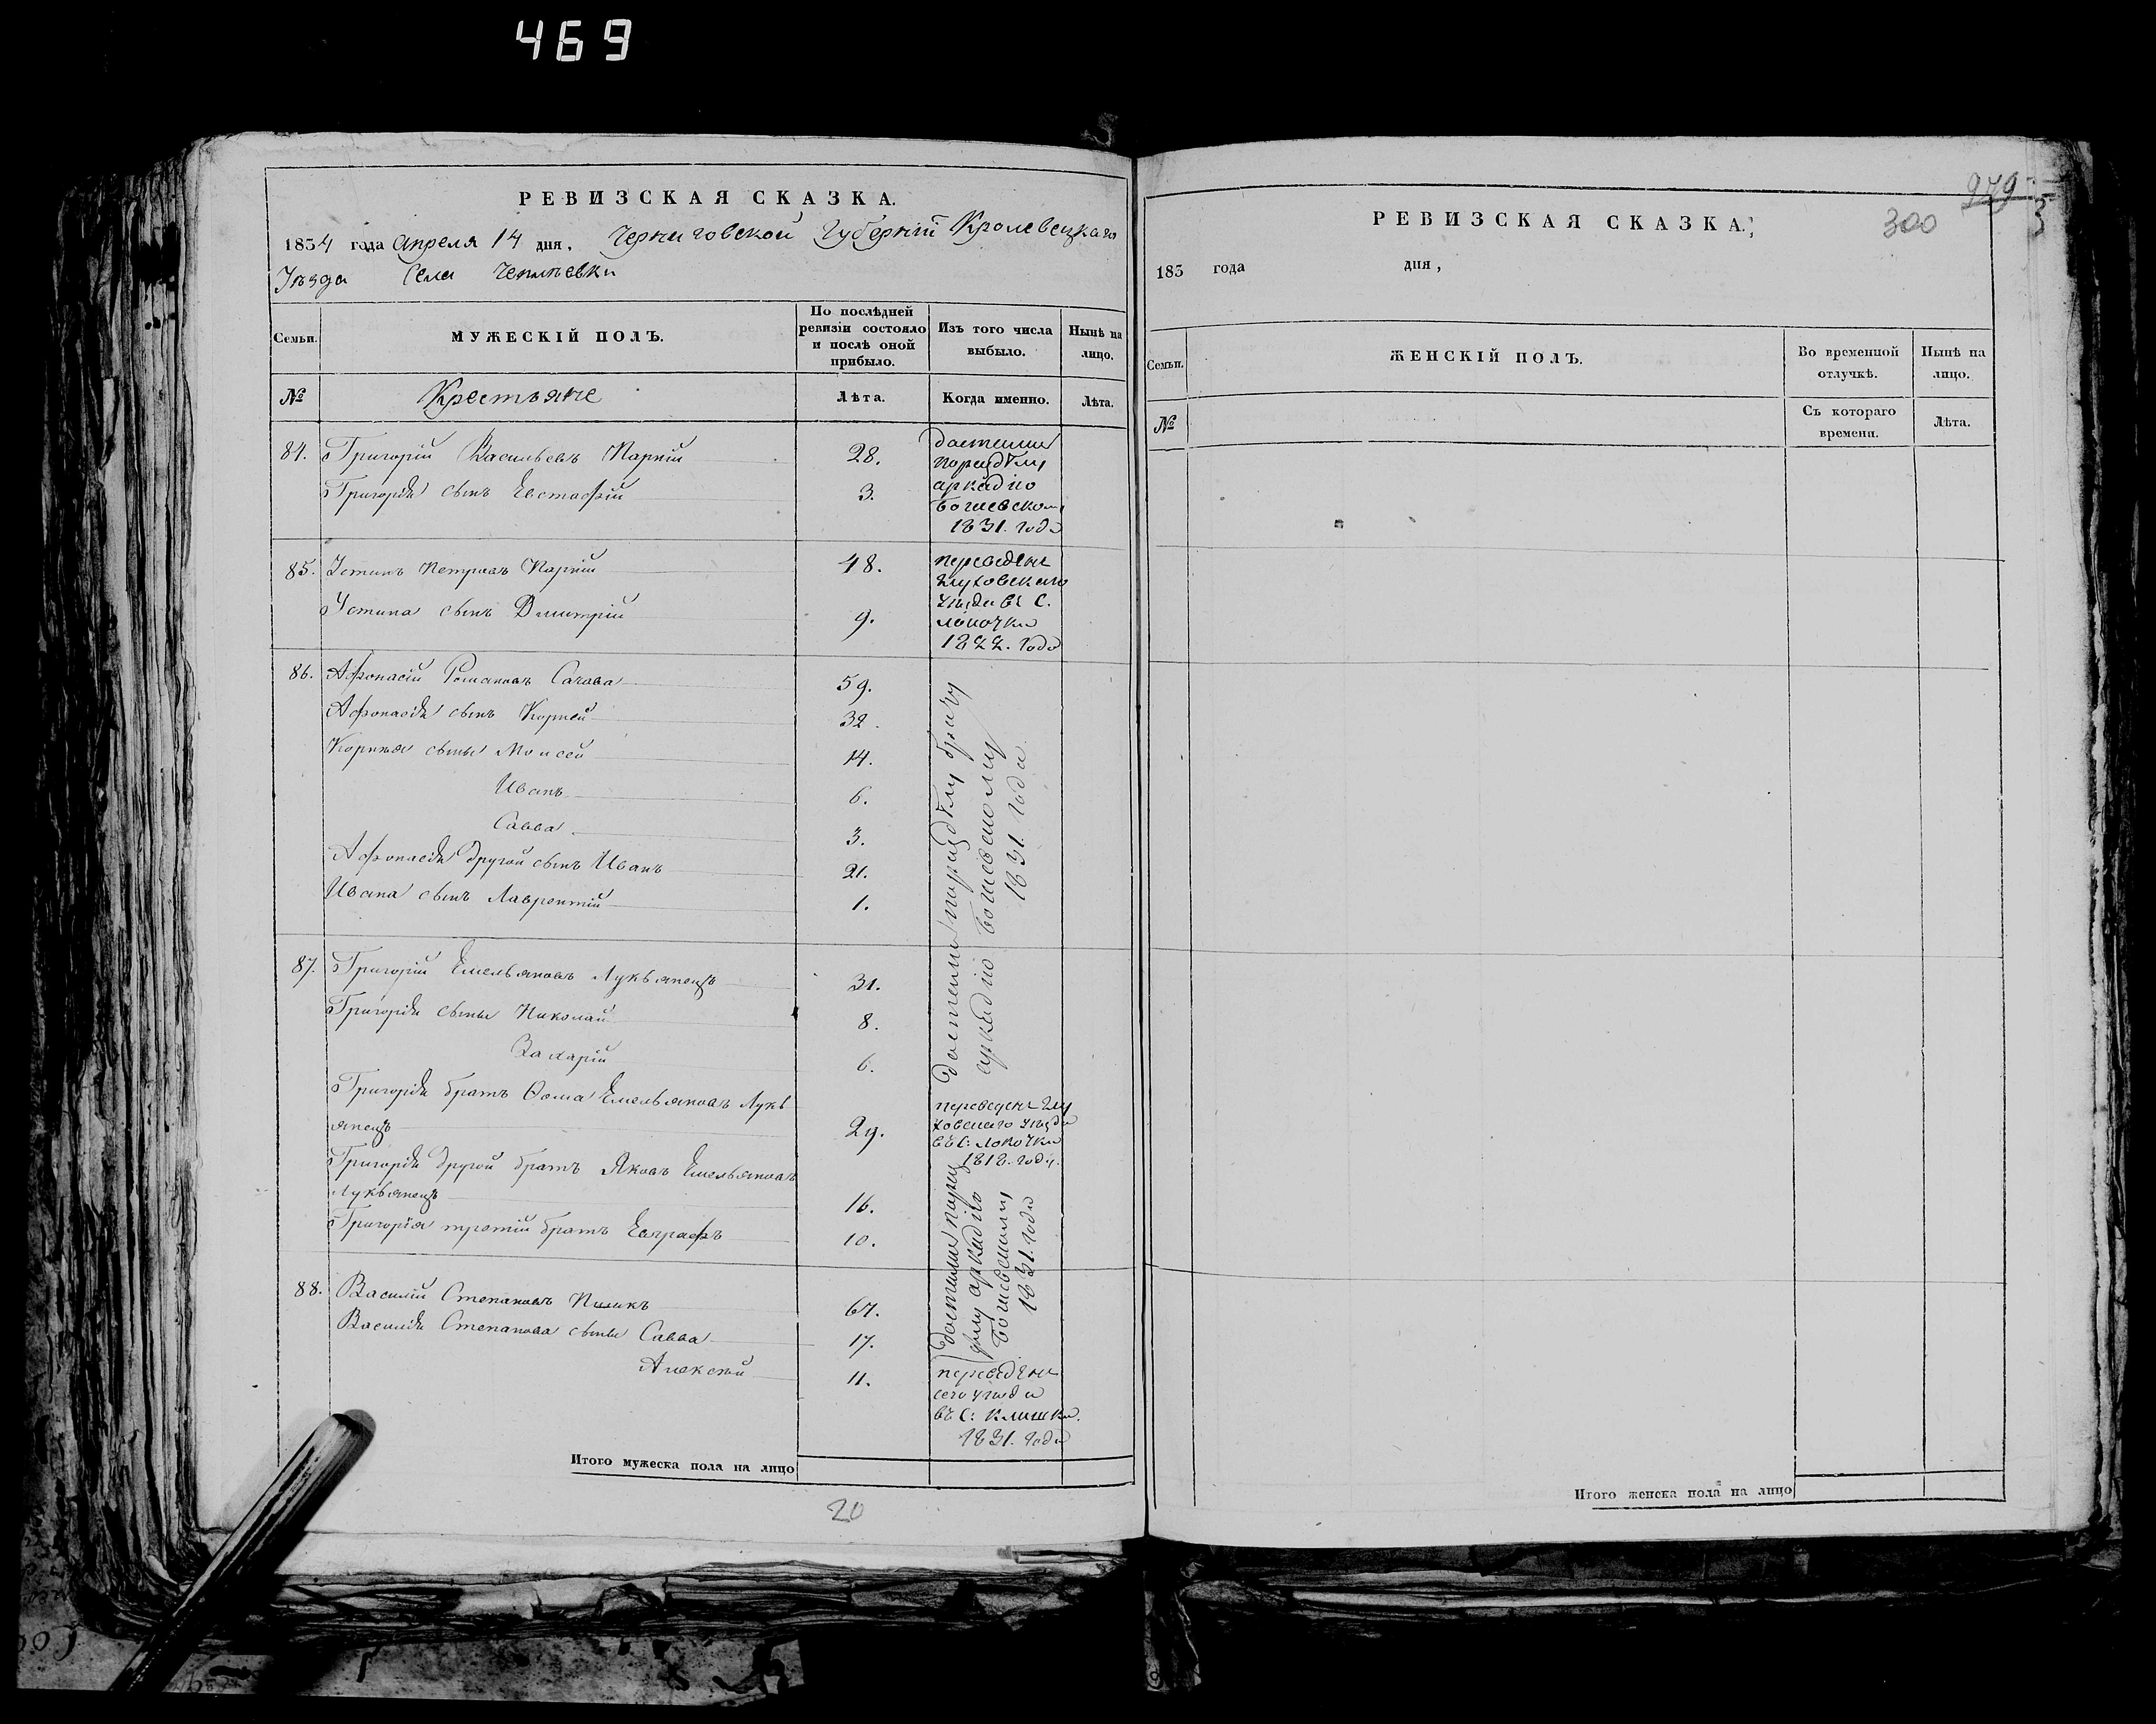 469
РЕВИЗСКАЯ СКАЗКА.
1834 года Апреля 14 дня, Черниговской Губерніи Кролевецкаго
Уѣзда Села
Семьи.
МУЖЕСКІЙ ПОЛЪ.
По послѣдней ревизіи состояло и послѣ оной прибыло.
Изъ того числа выбыло.
Нынѣ на лицо.
№
Крестьяне
Лѣта.
Когда именно.
Лѣта.
84. Григорій Васильевъ 28.
Григорія сынъ Евстафій 3.
достали
по раздѣлу
аркадію
1831. года
85. Устинъ Петровъ 48.
Устина сынъ Дмитрій 9.
переведены
глуховскаго
уѣзда въ С.
1822. года
86. Афонасій Романовъ 59.
Афонасія сынъ Корней 32.
Корнѣя сыны Моисей 14.
Иванъ 6.
Савва 3.
Афонасія другой сынъ Иванъ 21.
Ивана сынъ Лаврентій 1.
87. Григорій Емельяновъ Лукьянецъ 31.
Григорія сыны Николай 8.
Захарій 6.
достали по раздѣлу
аркадію
1831. года
Григорія братъ Ѳома Емельяновъ Лукь
янецъ 29.
переведенъ глу
ховскаго уѣзда
въ С:
1818. году.
Григорія другой братъ Яковъ Емельяновъ
Лукьянецъ 16.
Григорія третій братъ Евграфъ 10.
88. Василій Степановъ 67.
Василія Степанова сыны Савва 17.
достали по раз
дѣлу аркадію
1831. года
Алексѣй 11.
переведены
сего уѣзда
въ С: Клишки
1831. года
Итого мужеска пола на лицо
20
РЕВИЗСКАЯ СКАЗКА.
300
979
183 года дня,
Семьи.
ЖЕНСКІЙ ПОЛЪ.
Во временной отлучкѣ.
Нынѣ на лицо.
№
Съ котораго времени.
Лѣта.
Итого женска пола на лицо